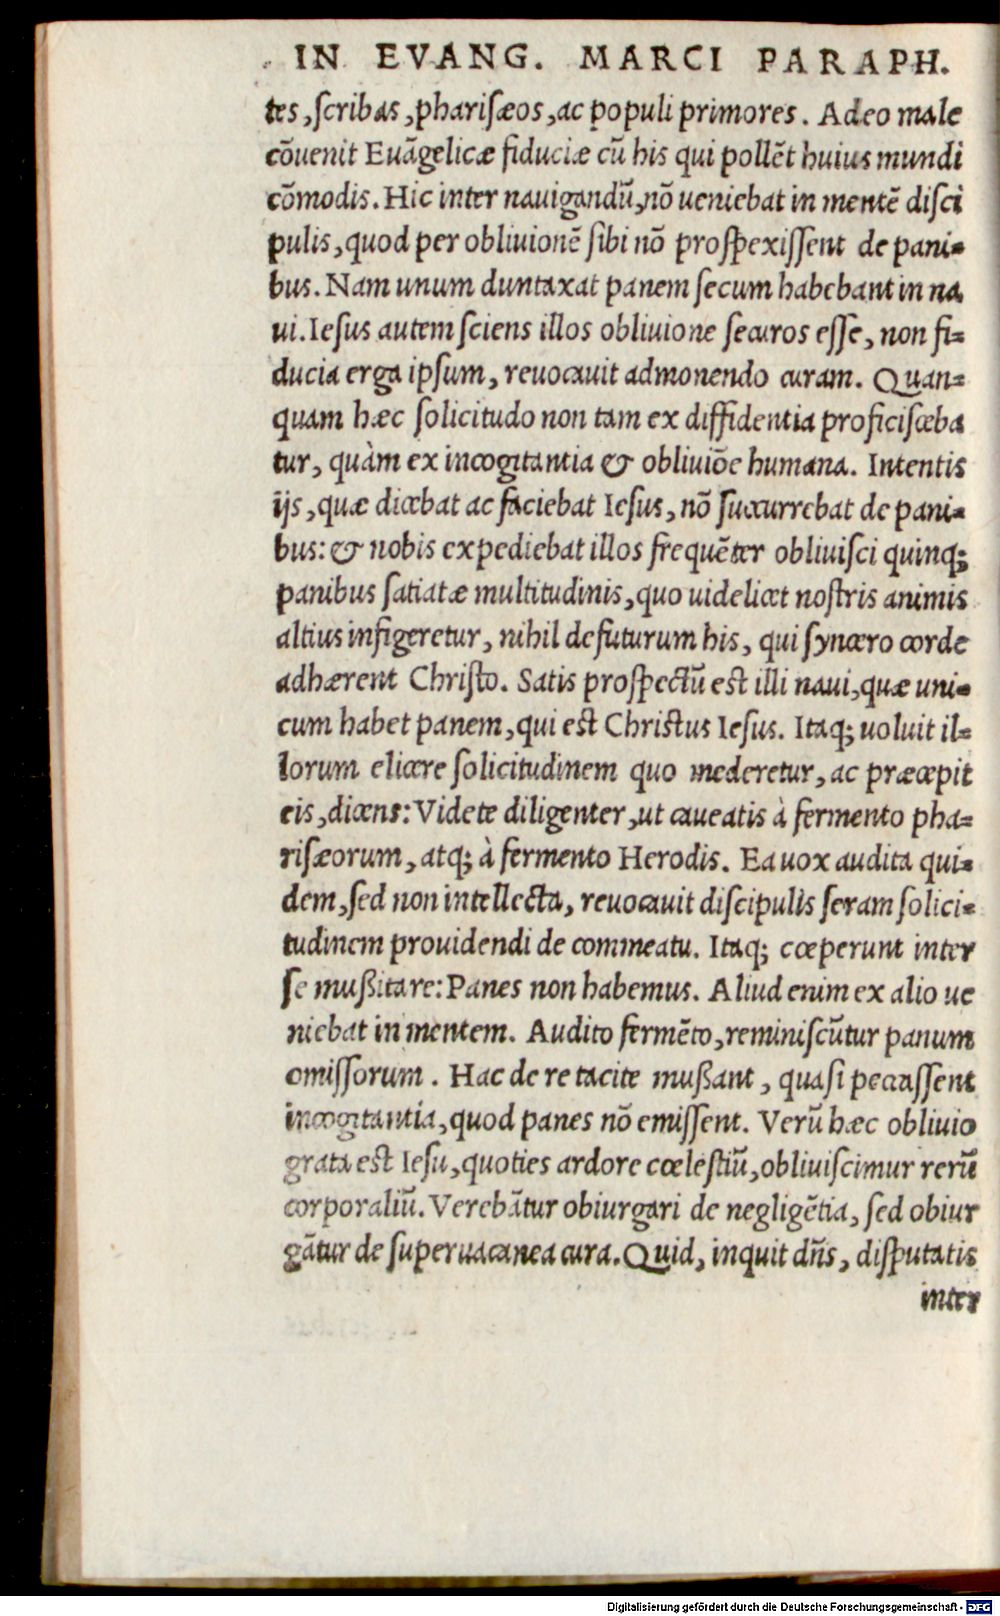 IN EVANG. MARCI PARAPH.
tes, scribas, pharisæos, ac populi primores. Adeo male
cōuenit Euāgelicæ fiduciæ cū his qui pollēt huius mundi
cōmodis. Hic inter nauigandū, nō ueniebat in mentē disci
pulis, quod per obliuionē sibi nō prospexissent de pani=
bus. Nam unum duntaxat panem secum habebant in na
ui. Iesus autem sciens illos obliuione securos esse, non fi=
ducia erga ipsum, reuocauit admonendo curam. Quan=
quam hæc solicitudo non tam ex diffidentia proficisceba
tur, quàm ex incogitantia & obliuiōe humana. Intentis
ijs, quæ dicebat ac faciebat Iesus, nō succurrebat de pani=
bus: & nobis expediebat illos frequēter obliuisci quinq;
panibus satiatæ multitudinis, quo uidelicet nostris animis
altius infigeretur, nihil defuturum his, qui syncero corde
adhærent Christo. Satis prospectū est illi naui, quæ uni=
cum habet panem, qui est Christus Iesus. Itaq; uoluit il=
lorum elicere solicitudinem quo mederetur, ac præcepit
eis, dicens: Videte diligenter, ut caueatis à fermento pha=
risæorum, atq; à fermento Herodis. Ea uox audita qui=
dem, sed non intellecta, reuocauit discipulis seram solici=
tudinem prouidendi de commeatu. Itaq; cœperunt inter
se mußitare: Panes non habemus. Aliud enim ex alio ue
niebat in mentem. Audito fermēto, reminiscūtur panum
omissorum. Hac de re tacite mußant, quasi peccassent
incogitantia, quod panes nō emissent. Verū hæc obliuio
grata est Iesu, quoties ardore cœlestiū, obliuiscimur rerū
corporaliū. Verebātur obiurgari de negligētia, sed obiur
gātur de superuacanea cura. Quid, inquit dñs, disputatis
inter
Digitalisierung gefördert durch die Deutsche Forschungsgemeinschaft - DFG